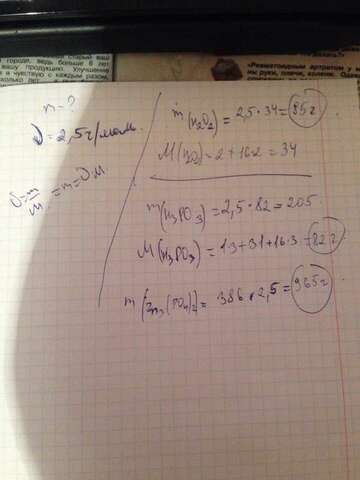 городе, ведь больше 6 лет
вашу продукцию. Улучшение
я чувствую с каждым разом,
«Ревматоидным артритом у м
ны руки, плечи, колени.
m - ?
ϑ = 2,5 г/моль.
ϑ = m/M = m = ϑM
m(H2O2) = 2,5 · 34 = 85 г
M(H2O) = 2 + 16·2 = 34
m(H3PO3) = 2,5 · 82 = 205
M(H3PO3) = 1·3 + 31 + 16·3 = 82 г
m(Zn3(PO4)2) = 386 · 2,5 = 965 г